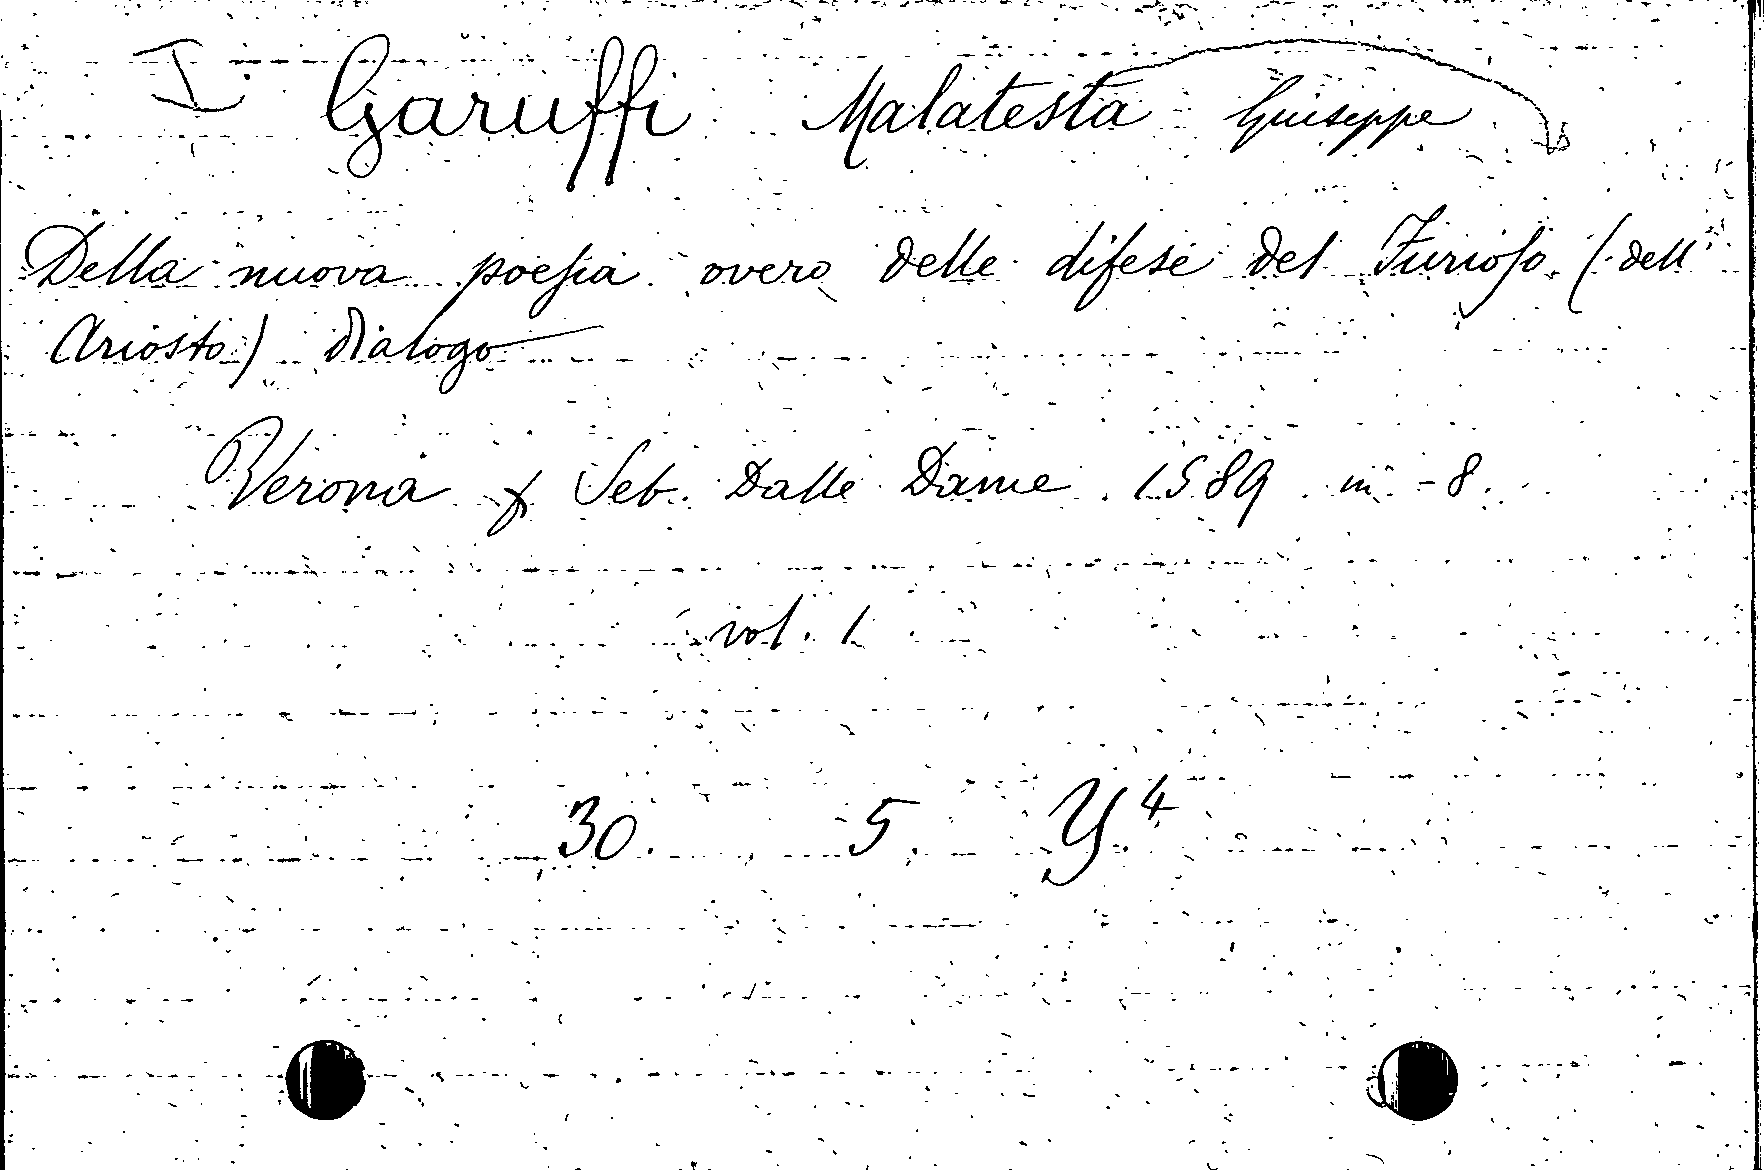 I Garuffi Malatesta Giuseppe
Della nuova poesia overo delle difese del Furioso (dell'
Ariosto) dialogo
Verona f Seb. Dalle Dame. 1589. in-8.
vol. 1
30. 5. Y4